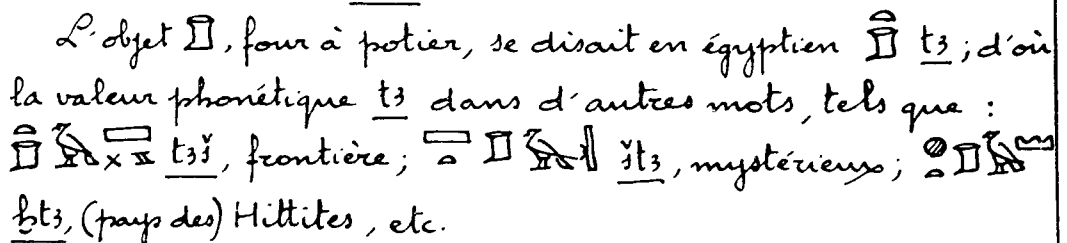 L'objet 𓍔, four à potier, se disait en égyptien 𓏏𓍔 tꜣ ; d'où
la valeur phonétique tꜣ dans d'autres mots, tels que :
𓏏𓍔𓄿𓈙𓏴𓈇 tꜣš, frontière ; 𓈙𓏏𓍔𓄿𓏜 štꜣ, mystérieux ; 𓐍𓏏𓍔𓄿𓈉
ḫtꜣ, (pays des) Hittites, etc.